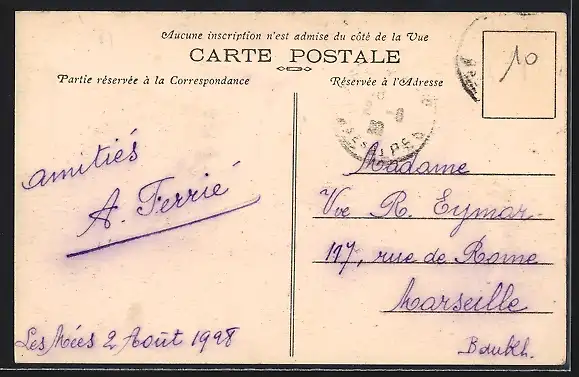 Aucune inscription n'est admise du côté de la Vue
CARTE POSTALE
Partie réservée à la Correspondance
Réservée à l'Adresse
10
amitiés
A. Ferrié
Les Mées 2 Août 1908
Madame
Vve R. Eymar
117, rue de Rome
Marseille
B du Rh.